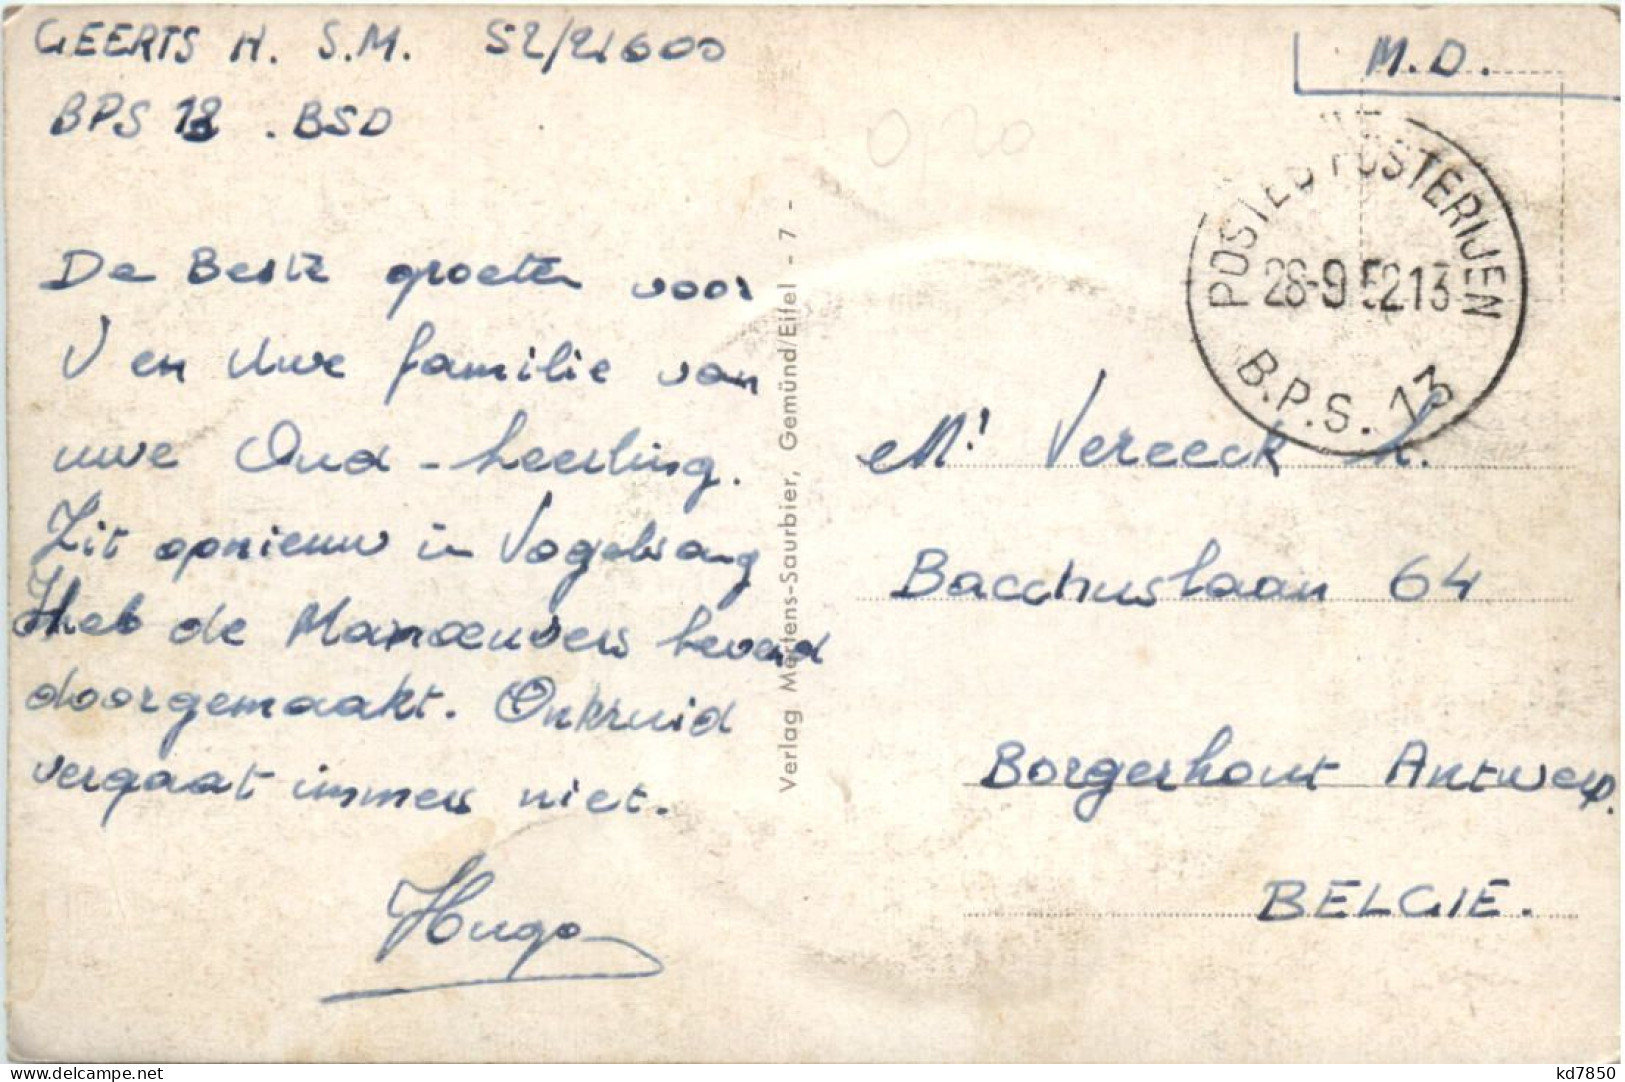 GEERTS H. S.M. 52/21600
BPS 13 . BSD
M.D.
0,20
POSTES POSTERIJEN
28-9 5213
B.P.S. 13
De Beste groeten voor
U en Uwe familie van
uwe Oud-Leerling.
Zit opnieuw in Vogelsang
Heb de Manoeuvers levend
doorgemaakt. Onkruid
vergaat immers niet.
Hugo
Verlag Mertens-Saurbier, Gemünd/Eifel - 7 -
Mr Vereeck
Bacchuslaan 64
Borgerhout Antwerp.
BELGIE.
delcampe.net
kd7850